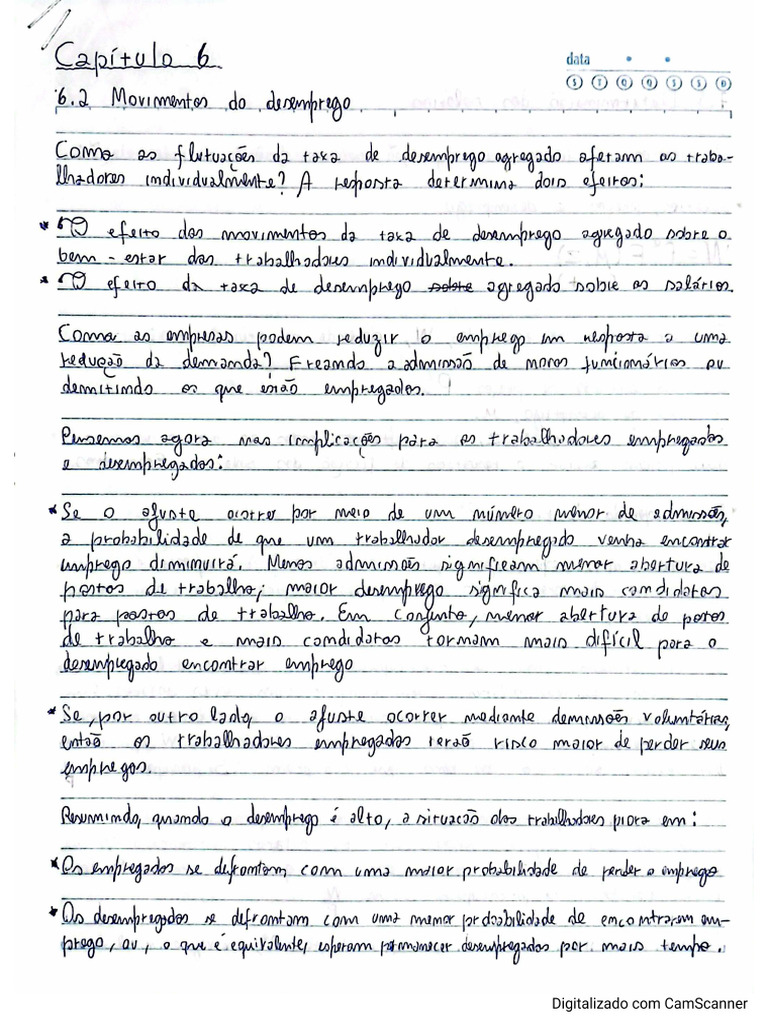 Capítulo 6
data
S T Q Q S S D
6.2 Movimentos do desemprego
Como as flutuações da taxa de desemprego agregado afetam os traba-
lhadores individualmente? A resposta determina dois efeitos:
* O efeito dos movimentos da taxa de desemprego agregado sobre o
bem-estar dos trabalhadores individualmente.
* O efeito da taxa de desemprego sobre agregado sobre os salários.
Como as empresas podem reduzir o emprego em resposta a uma
redução da demanda? Freando a admissão de novos funcionários ou
demitindo os que estão empregados.
Pensemos agora nas implicações para os trabalhadores empregados
e desempregados:
* Se o ajuste ocorrer por meio de um número menor de admissões,
a probabilidade de que um trabalhador desempregado venha encontrar
emprego diminuirá. Menos admissões significam menor abertura de
postos de trabalho; maior desemprego significa mais candidatos
para postos de trabalho. Em conjunto, menor abertura de postos
de trabalho e mais candidatos tornam mais difícil para o
desempregado encontrar emprego
* Se, por outro lado, o ajuste ocorrer mediante demissões voluntárias,
então os trabalhadores empregados terão risco maior de perder seus
empregos.
Resumindo, quando o desemprego é alto, a situação dos trabalhadores piora em:
* Os empregados se defrontam com uma maior probabilidade de perder o emprego
* Os desempregados se defrontam com uma menor probabilidade de encontrarem em-
prego, ou, o que é equivalente, esperam permanecer desempregados por mais tempo.
Digitalizado com CamScanner